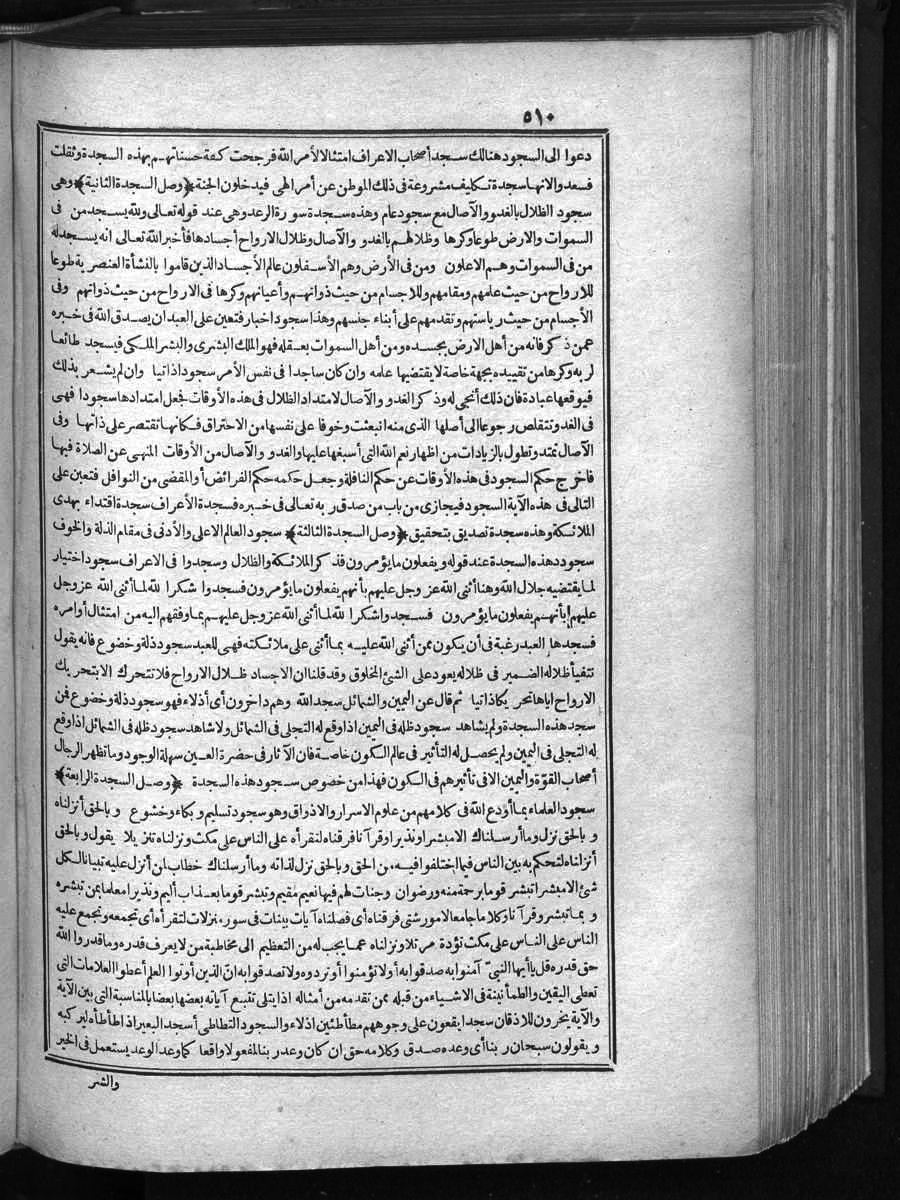 ٥١٠
دعوا الى السجود هنالك سجد أصحاب الاعراف امتثالا لأمر الله فرجحت كفة حسناتهم بهذه السجدة وثقلت
فسعدوا لانها سجدة تكليف مشروعة فى ذلك الموطن عن أمر الهى فيدخلون الجنة ﴿وصل السجدة الثانية﴾ وهى
سجود الظلال بالغدو والآصال مع سجود عام وهذه سجدة سورة الرعد وهى عند قوله تعالى ولله يسجد من فى
السموات والارض طوعا وكرها وظلالهم بالغدو والآصال وظلال الارواح أجسادها فأخبر الله تعالى انه يسجد له
من فى السموات وهم الاعلون ومن فى الأرض وهم الأسفلون عالم الأجساد الذين قاموا بالنشأة العنصرية طوعا
للارواح من حيث علمهم ومقامهم وللاجسام من حيث ذواتهم وأعيانهم وكرها فى الارواح من حيث ذواتهم وفى
الأجسام من حيث رياستهم وتقدمهم على أبناء جنسهم وهذا سجود اخبار فتعين على العبد ان يصدق الله فى خبره
عمن ذكر فانه من أهل الارض بجسده ومن أهل السموات بعقله فهو الملك البشرى والبشر الملكى فيسجد طائعا
لربه وكرها من تقييده بجهة خاصة لا يقتضيها علمه وان كان ساجدا فى نفس الأمر سجودا ذاتيا وان لم يشعر بذلك
فيوقعها عبادة فان ذلك أنجى له وذكر الغدو والآصال لامتداد الظلال فى هذه الأوقات فجعل امتدادها سجودا فهى
فى الغدو تتقلص رجوعا الى أصلها الذى منه انبعثت وخوفا على نفسها من الاحتراق فكانها تقتصر على ذاتها وفى
الآصال تمتد وتطول بالزيادات من اظهار نعم الله التى أسبغها عليها والغدو والآصال من الأوقات المنهى عن الصلاة فيها
فاخرج حكم السجود فى هذه الأوقات عن حكم النافلة وجعل حكمه حكم الفرائض أو المقضى من النوافل فتعين على
التالى فى هذه الآية السجود فيجازى من باب من صدق ربه تعالى فى خبره فسجدة الأعراف سجدة اقتداء بهدى
الملائكة وهذه سجدة تصديق بتحقيق ﴿وصل السجدة الثالثة﴾ سجود العالم الاعلى والأدنى فى مقام الذلة والخوف
سجود هذه السجدة عند قوله ويفعلون ما يؤمرون فذكر الملائكة والظلال وسجدوا فى الاعراف سجود اختيار
لما يقتضيه جلال الله وهنا أثنى الله عز وجل عليهم بأنهم يفعلون ما يؤمرون فسجدوا شكرا لله لما أثنى الله عز وجل
عليهم بأنهم يفعلون ما يؤمرون فسجدوا شكرا لله لما أثنى الله عز وجل عليهم بما وفقهم اليه من امتثال أوامره
فسجدها العبد رغبة فى أن يكون ممن أثنى الله عليه بما أثنى على ملائكته فهى للعبد سجود ذلة وخضوع فانه يقول
تتفيأ ظلاله الضمير فى ظلاله يعود على الشئ المخلوق وقد قلنا ان الاجساد ظلال الارواح فلا تتحرك الا بتحريك
الارواح اياها تحريكا ذاتيا ثم قال عن اليمين والشمائل سجدا لله وهم داخرون أى أذلاء فهو سجود ذلة وخضوع فمن
سجد هذه السجدة ولم يشاهد سجود ظله فى اليمين اذا وقع له التجلى فى الشمائل ولا شاهد سجود ظله فى الشمائل اذا وقع
له التجلى فى اليمين ولم يحصل له التأثير فى عالم الكون خاصة فان الآثار فى حضرة العين سهلة الوجود وما تظهر الرجال
أصحاب القوة واليمين الا فى تأثيرهم فى الكون فهذا من خصوص سجود هذه السجدة ﴿وصل السجدة الرابعة﴾
سجود العلماء بما أودع الله فى كلامهم من علوم الاسرار والاذواق وهو سجود تسليم وبكاء وخشوع وبالحق أنزلناه
وبالحق نزل وما أرسلناك الا مبشرا ونذيرا وقرآنا فرقناه لتقرأه على الناس على مكث ونزلناه تنزيلا يقول وبالحق
أنزلناه لتحكم به بين الناس فيما اختلفوا فيه من الحق وبالحق نزل لذاته وما أرسلناك خطاب لمن أنزل عليه تبيانا لكل
شئ الا مبشرا تبشر قوما برحمة منه ورضوان وجنات لهم فيها نعيم مقيم وتبشر قوما بعذاب أليم ونذيرا معلما بمن تبشره
وبما تبشر وقرآنا وكلاما جامعا لامور شتى فرقناه أى فصلناه آيات بينات فى سور منزلات لتقرأه أى تجمعه وتجمع عليه
الناس على الناس على مكث تؤدة مرتلا ونزلناه عما يجب له من التعظيم الى مخاطبة من لا يعرف قدره وما قدروا الله
حق قدره قل يا أيها النبى آمنوا به صدقوا به أو لا تؤمنوا أو تردوه ولا تصدقوا به ان الذين أوتوا العلم أعطوا العلامات التى
تعطى اليقين والطمأنينة فى الاشياء من قبله ممن تقدمه من أمثاله اذا يتلى تتبع آياته بعضها بعضا بالمناسبة التى بين الآية
والآية يخرون للاذقان سجدا يقعون على وجوههم مطأطئين اذلاء والسجود التطاطى أسجد البعير اذا طأطأه ليركبه
ويقولون سبحان ربنا أى وعده صدق وكلامه حق ان كان وعد ربنا لمفعولا واقعا كما وعد الوعد يستعمل فى الخير
والشر